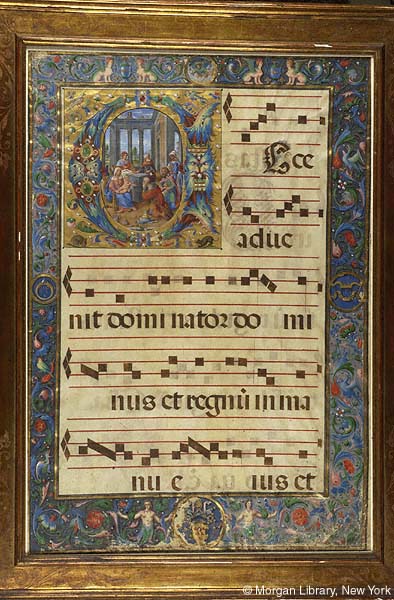 Ecce
aduc
nit domi nator do mi
nus et regnū in ma
nu e ius et
© Morgan Library, New York